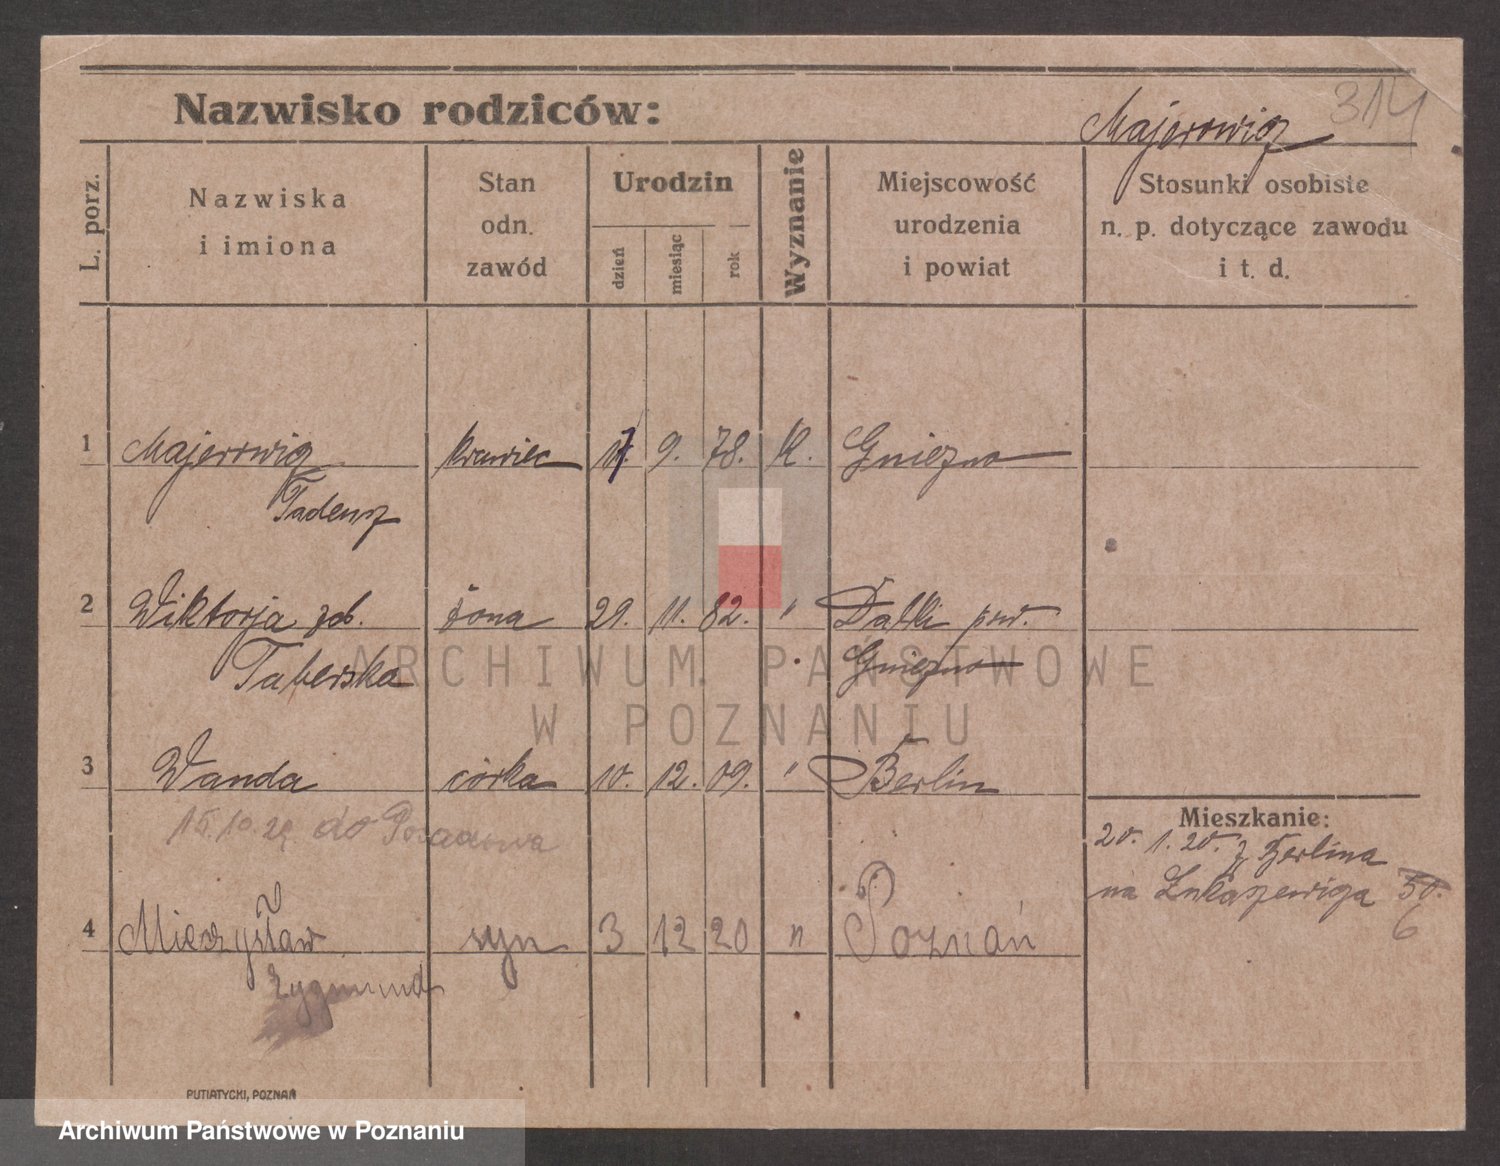 314
Nazwisko rodziców: Majerowicz
L. porz.
Nazwiska
i imiona
Stan
odn.
zawód
Urodzin
dzień
miesiąc
rok
Wyznanie
Miejscowość
urodzenia
i powiat
Stosunki osobiste
n. p. dotyczące zawodu
i t. d.
1 Majerowicz krawiec 17. 9. 78. K. Gniezno
Tadeusz
2 Wiktorja zob. żona 29. 11. 82. " Dalki pow.
Taberska Gniezno
3 Wanda córka 10. 12. 09. " Berlin
15.10.29 do
Mieszkanie:
20. 1. 20. z Berlina
na Łukaszewicza 50.
6
4 Mieczysław syn 3 12 20 n Poznań
Zygmund
PUTIATYCKI, POZNAŃ
ARCHIWUM PAŃSTWOWE
W POZNANIU
Archiwum Państwowe w Poznaniu